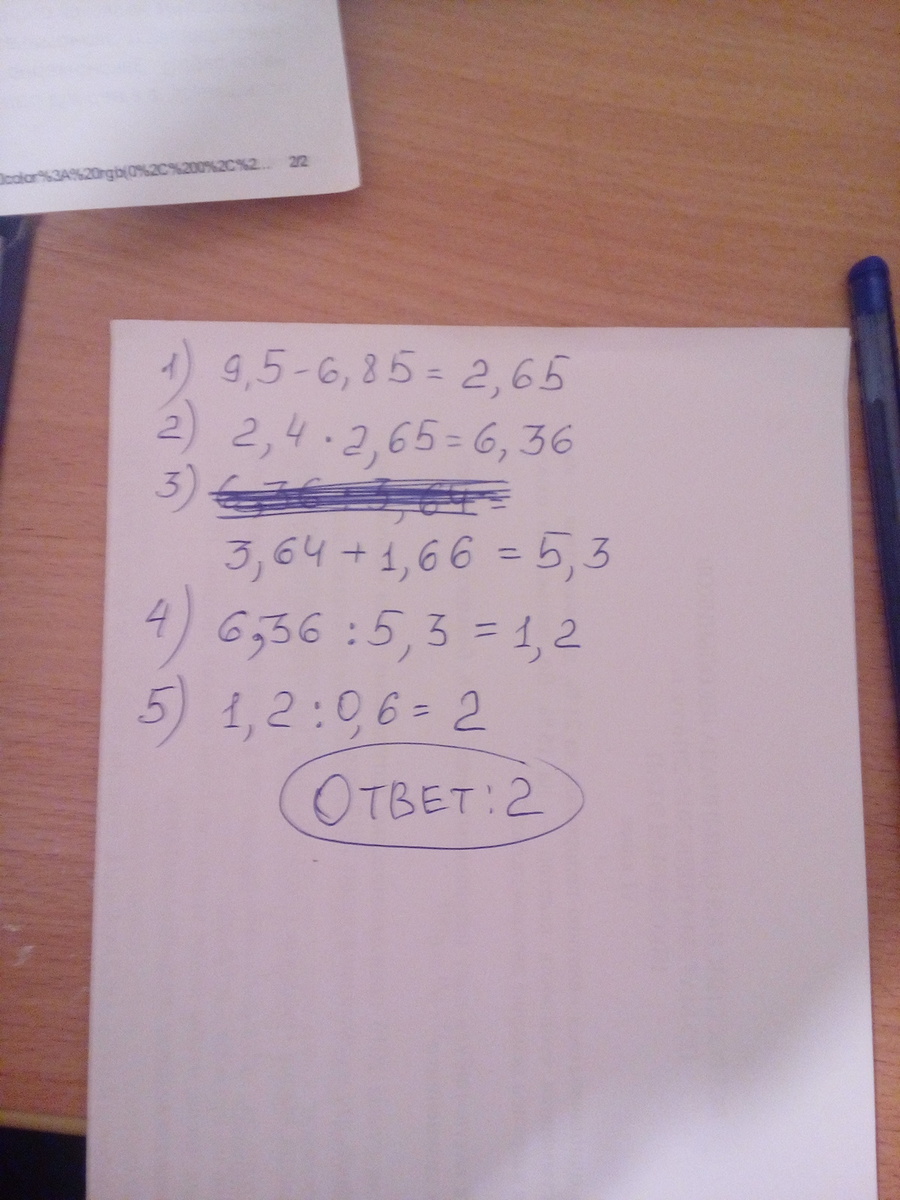 0color%3A%20rgb(0%2C%200%2C%2... 2/2
1) 9,5-6,85= 2,65
2) 2,4·2,65=6,36
3) 6,36:3,64=
3,64+1,66=5,3
4) 6,36:5,3=1,2
5) 1,2:0,6=2
ОТВЕТ:2